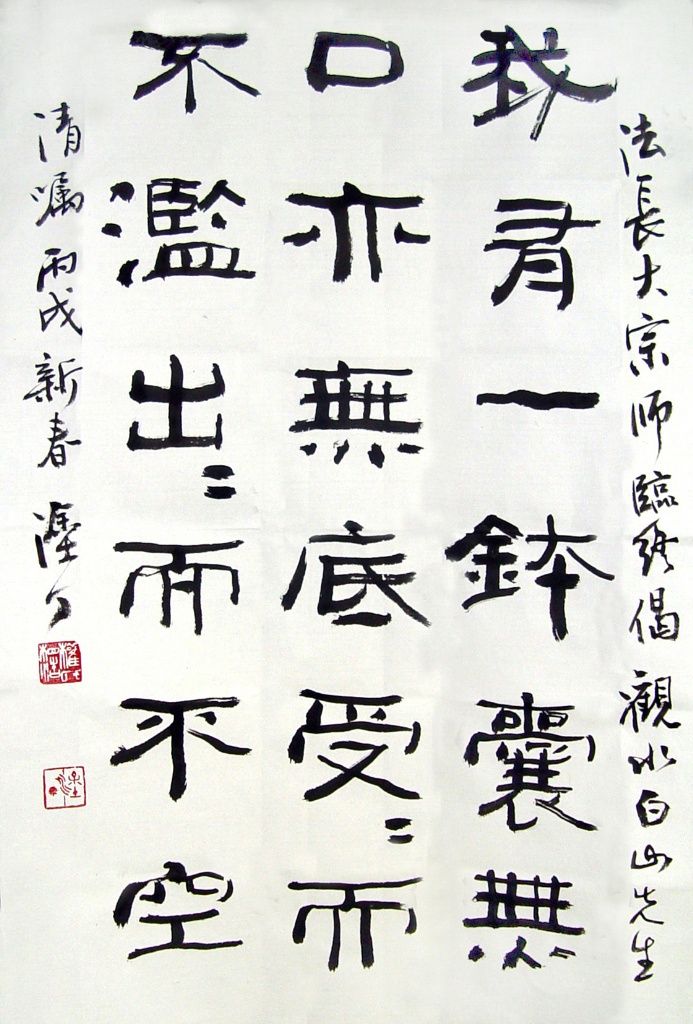 法長大宗師臨終偈 觀水白山先生
我有一鉢囊無
口亦無底受〻而
不濫出〻而不空
清嘱丙戌新春